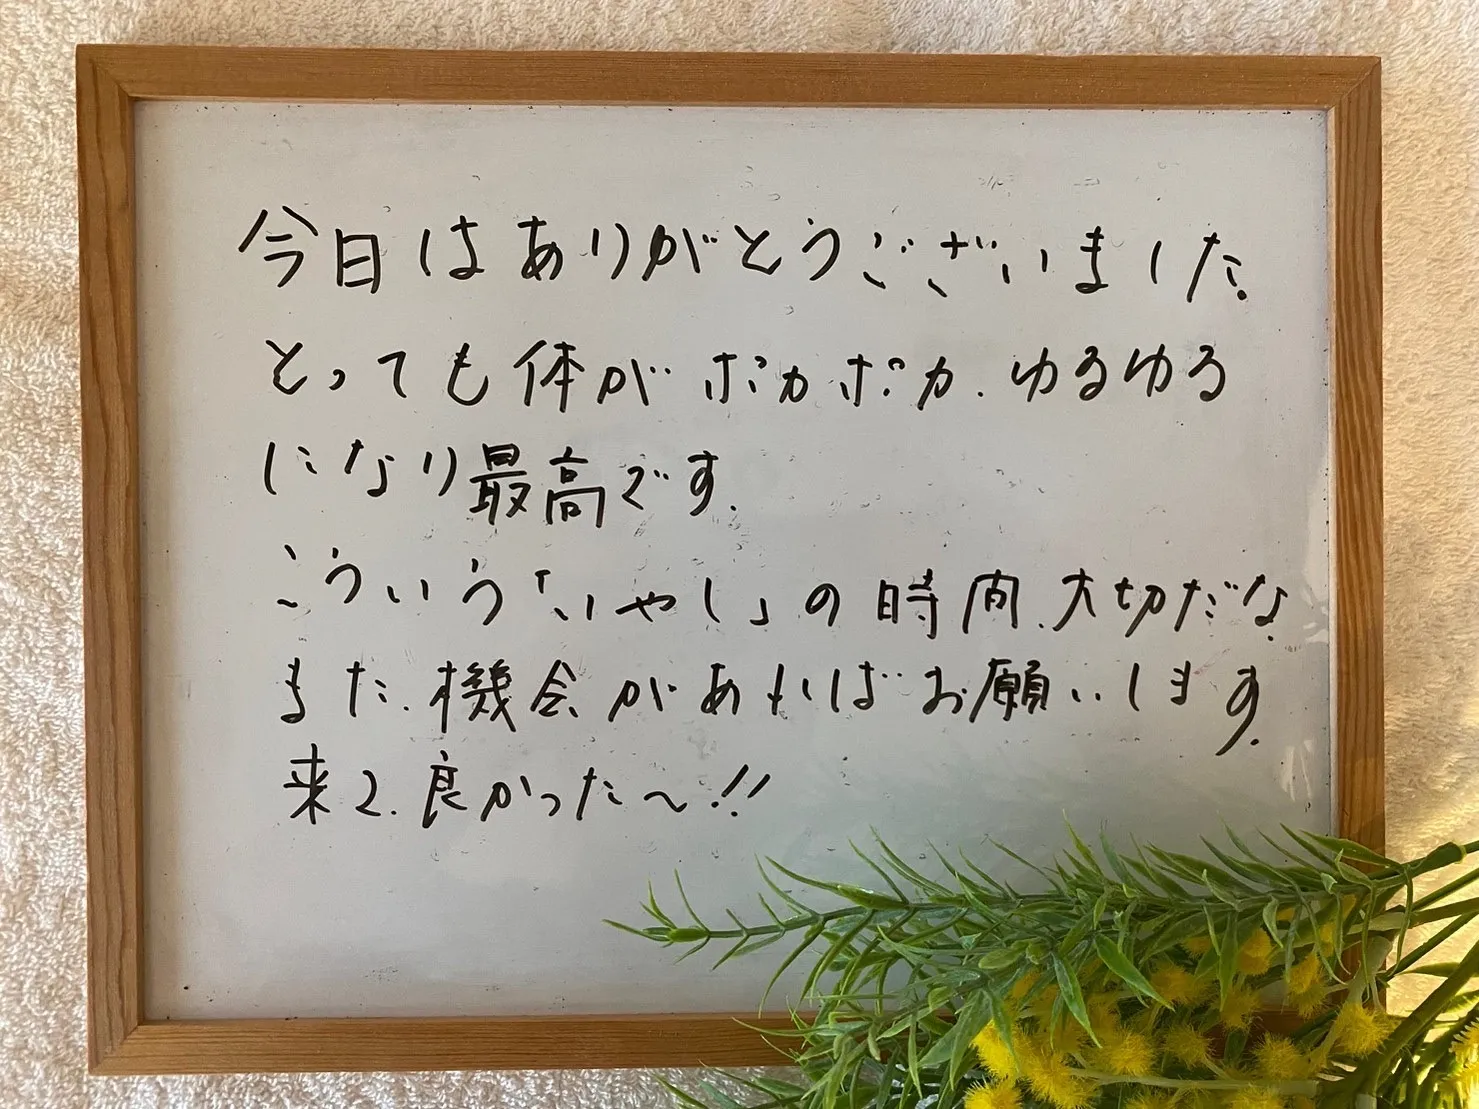 今日はありがとうございました.
とっても体がポカポカ.ゆるゆる
になり最高です.
こういう「いやし」の時間.大切だな.
また.機会があればお願いします.
来て.良かった〜!!